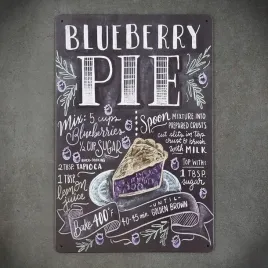 BLUEBERRY
PIE
Mix: 5 cups
Blueberries
CUP SUGAR
2 TBSP. TAPIOCA
1 TBSP.
lemon
juice
Spoon MIXTURE INTO
PREPARED CRUSTS
cut slits in top
crust & brush
with MILK
TOP WITH:
1 TBSP.
sugar
Bake 400°F
40-45 min.
UNTIL
GOLDEN BROWN